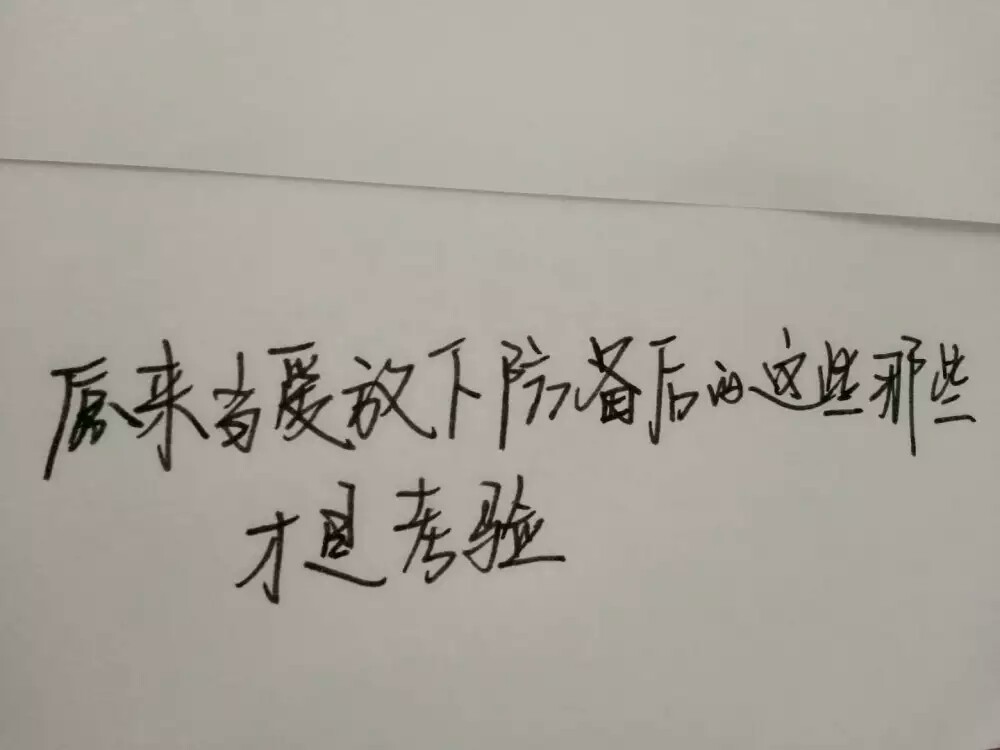 原来当爱放下防备后的这些那些
才是考验